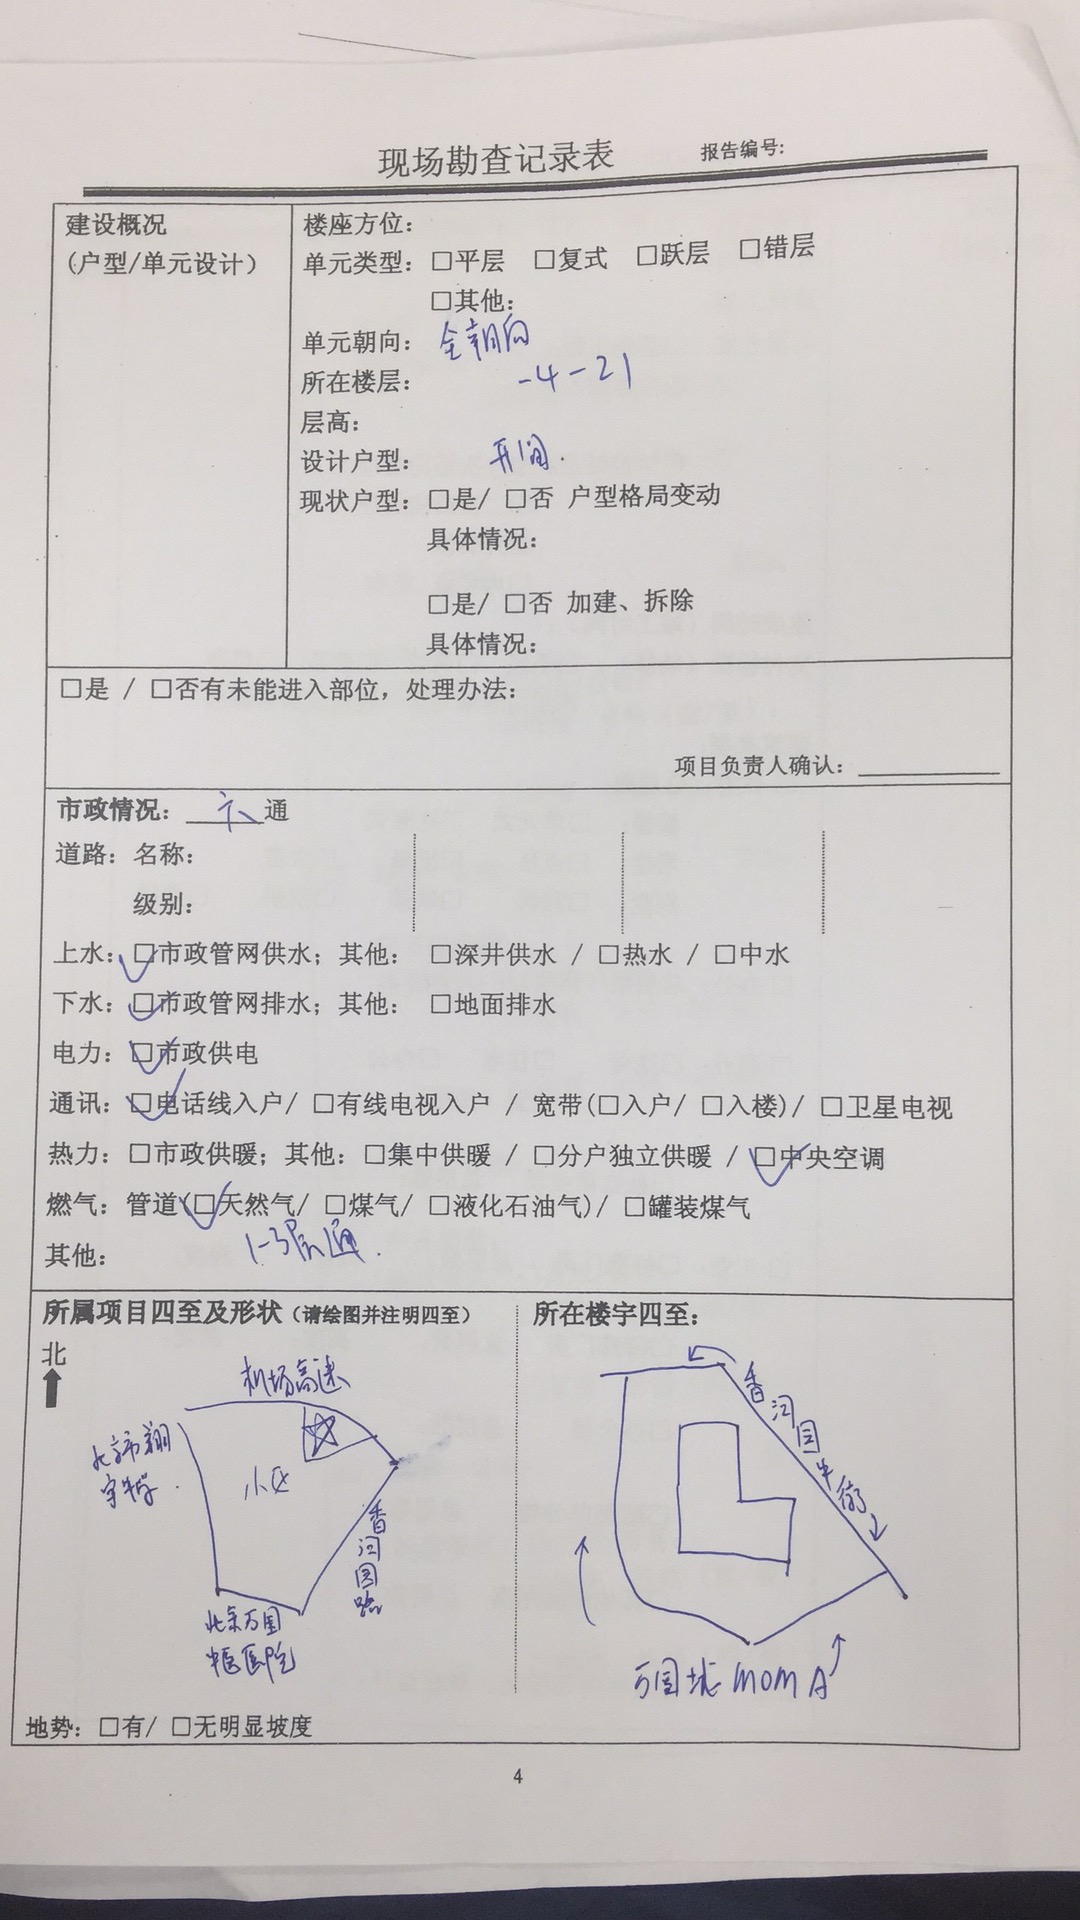 现场勘查记录表 报告编号:
建设概况
(户型/单元设计)
楼座方位:
单元类型: □平层 □复式 □跃层 □错层
□其他:
单元朝向: 全朝向
所在楼层: -4-21
层高:
设计户型: 开间.
现状户型: □是/ □否 户型格局变动
具体情况:
□是/ □否 加建、拆除
具体情况:
□是 / □否有未能进入部位，处理办法:
项目负责人确认:
市政情况: 六通
道路: 名称:
级别:
上水: □市政管网供水; 其他: □深井供水 / □热水 / □中水
下水: □市政管网排水; 其他: □地面排水
电力: □市政供电
通讯: □电话线入户/ □有线电视入户 / 宽带(□入户/ □入楼)/ □卫星电视
热力: □市政供暖; 其他: □集中供暖 / □分户独立供暖 / □中央空调
燃气: 管道(□天然气/ □煤气/ □液化石油气)/ □罐装煤气
其他: 1-3层通.
所属项目四至及形状(请绘图并注明四至)
北
机场高速
北京市翔
宇中学.
小区
香河园路
北京万国
中医医院
所在楼宇四至:
香河园中街
万国城MOMA
地势: □有/ □无明显坡度
4